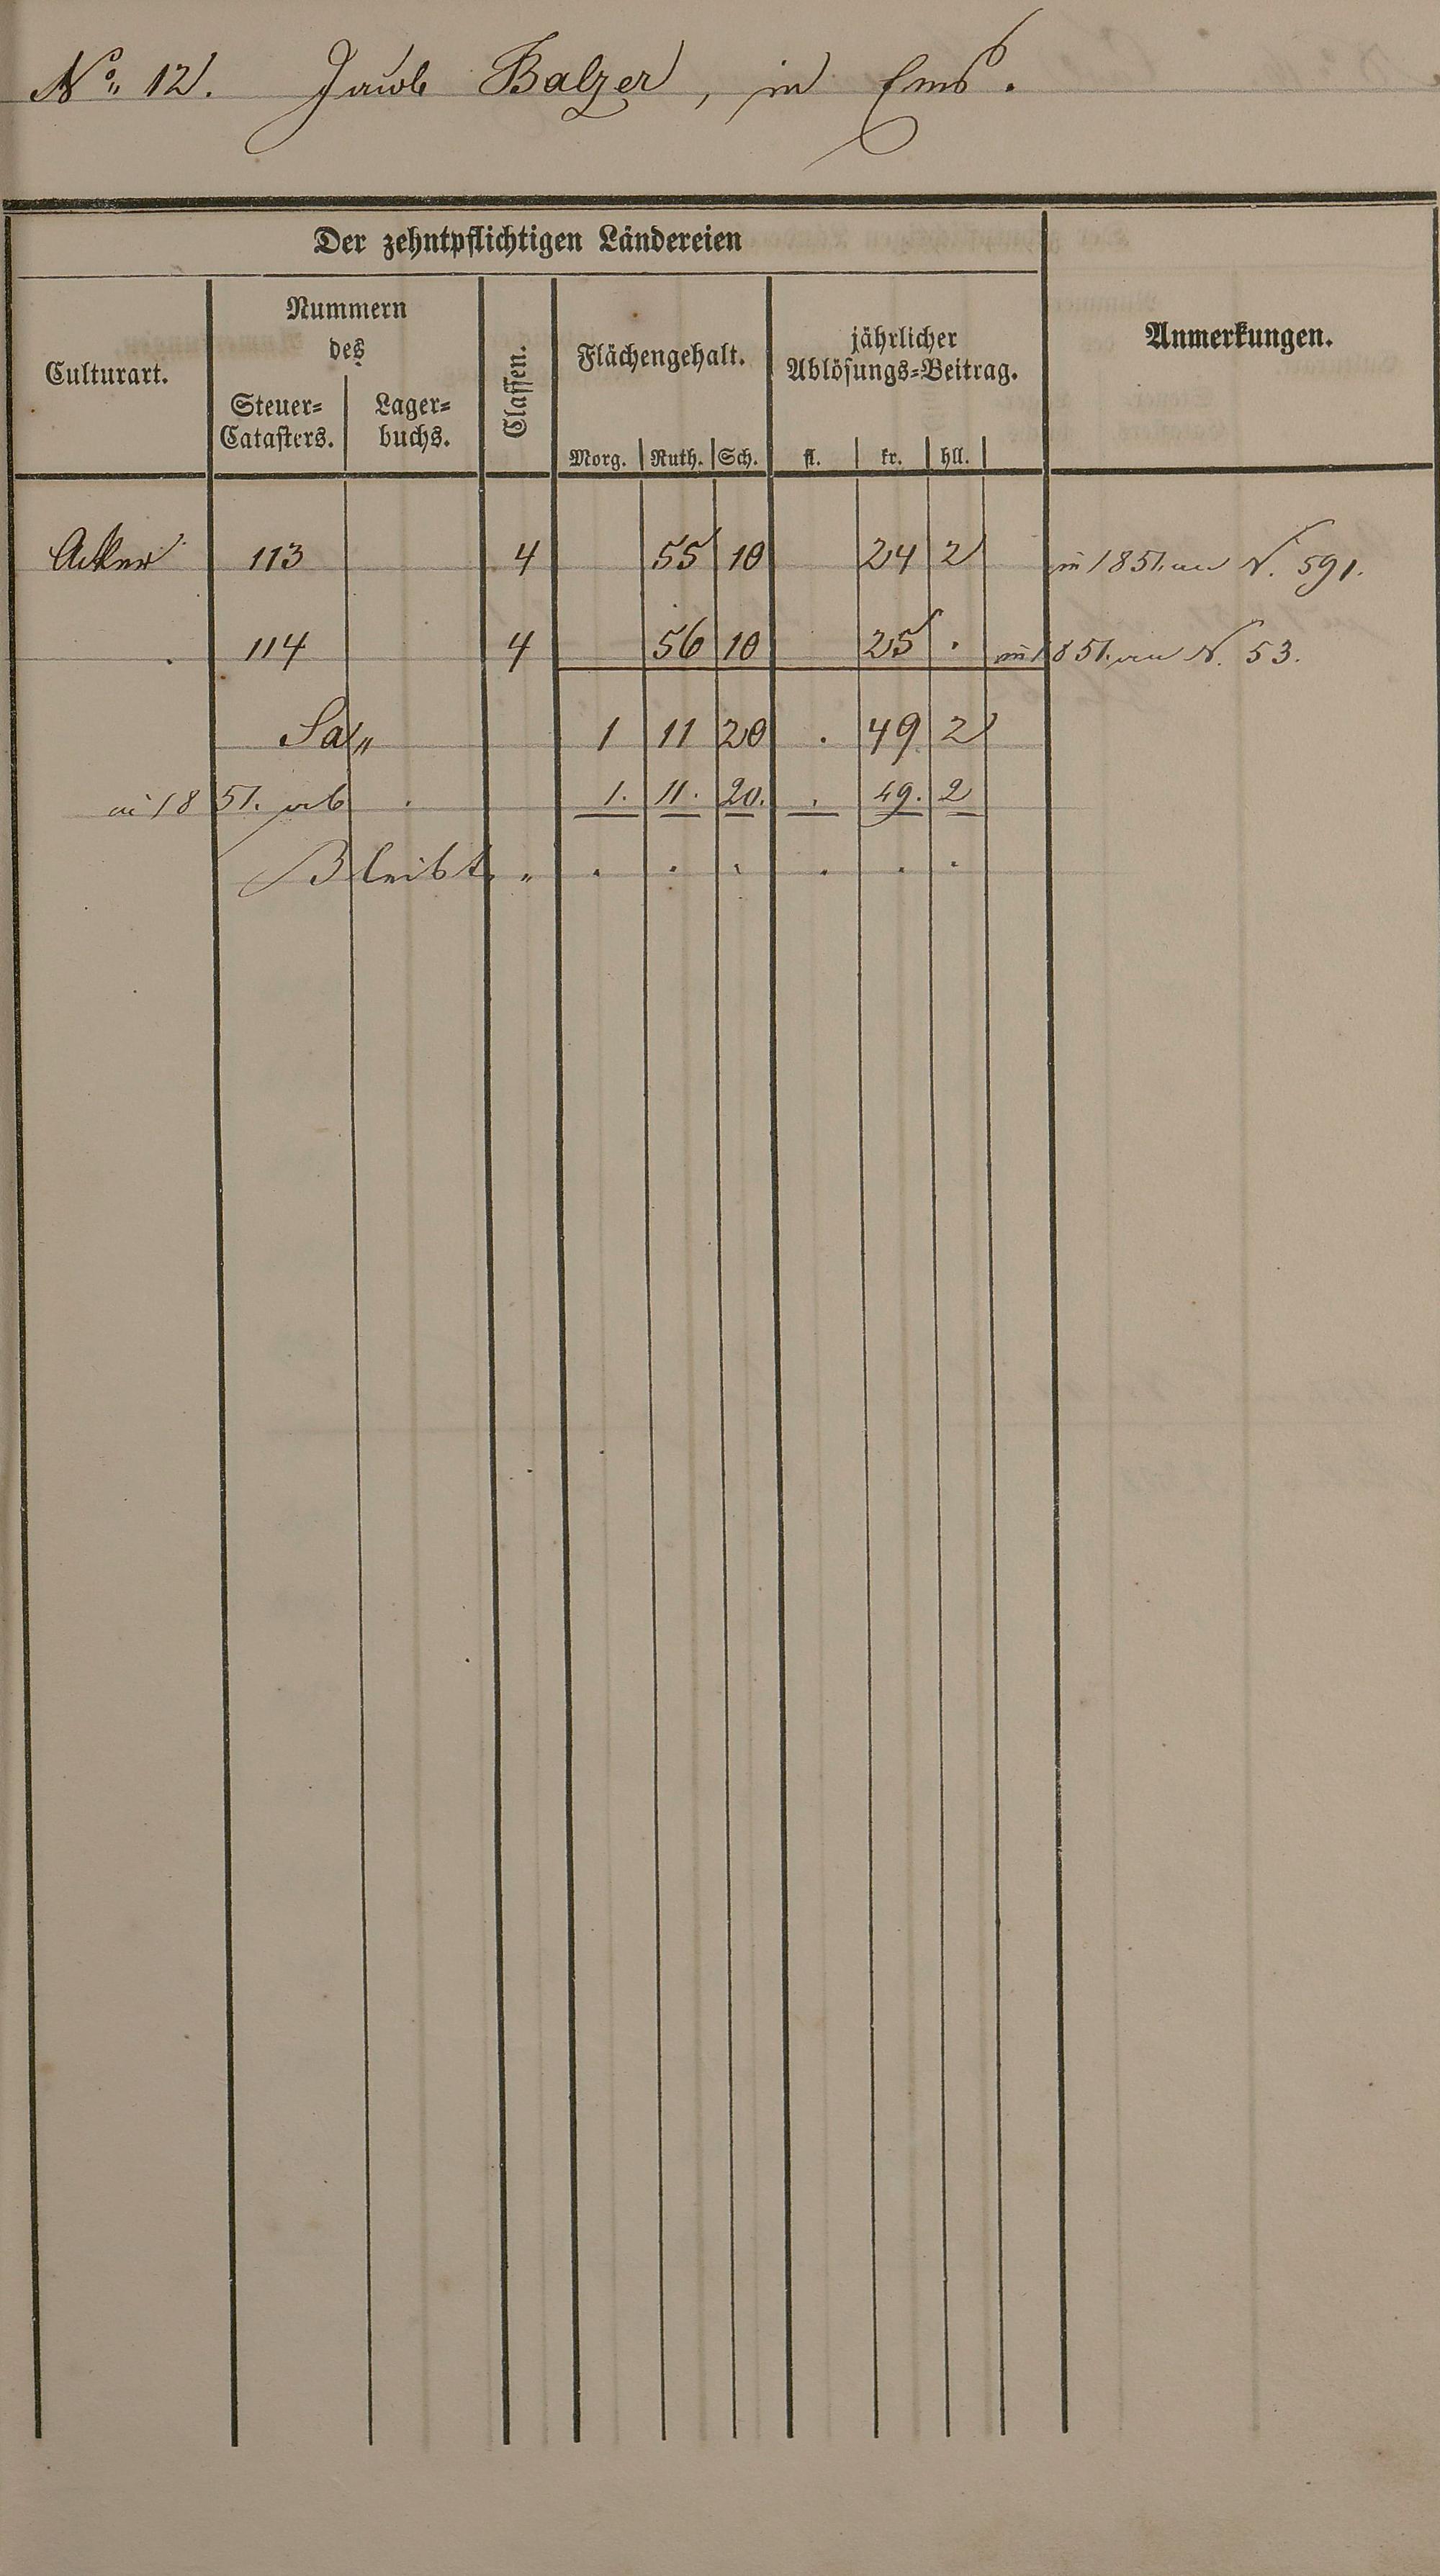 No. 12. Jacob Balzer, in Ems.
Der zehntpflichtigen Ländereien
Culturart.
Nummern
des
Steuer=
Catasters.
Lager=
buchs.
Classen.
Flächengehalt.
Morg. Ruth. Sch.
jährlicher
Ablösungs=Beitrag.
fl. kr. hll.
Anmerkungen.
Acker 113 4 55 10 24 2 in 1851. an N. 591.
. 114 4 56 10 25 . in 1851. an N. 53.
Sa„ 1 11 20 . 49 2
in 1851. ab . 1. 11. 20. . 49. 2
Bleibt „ . . . . . .